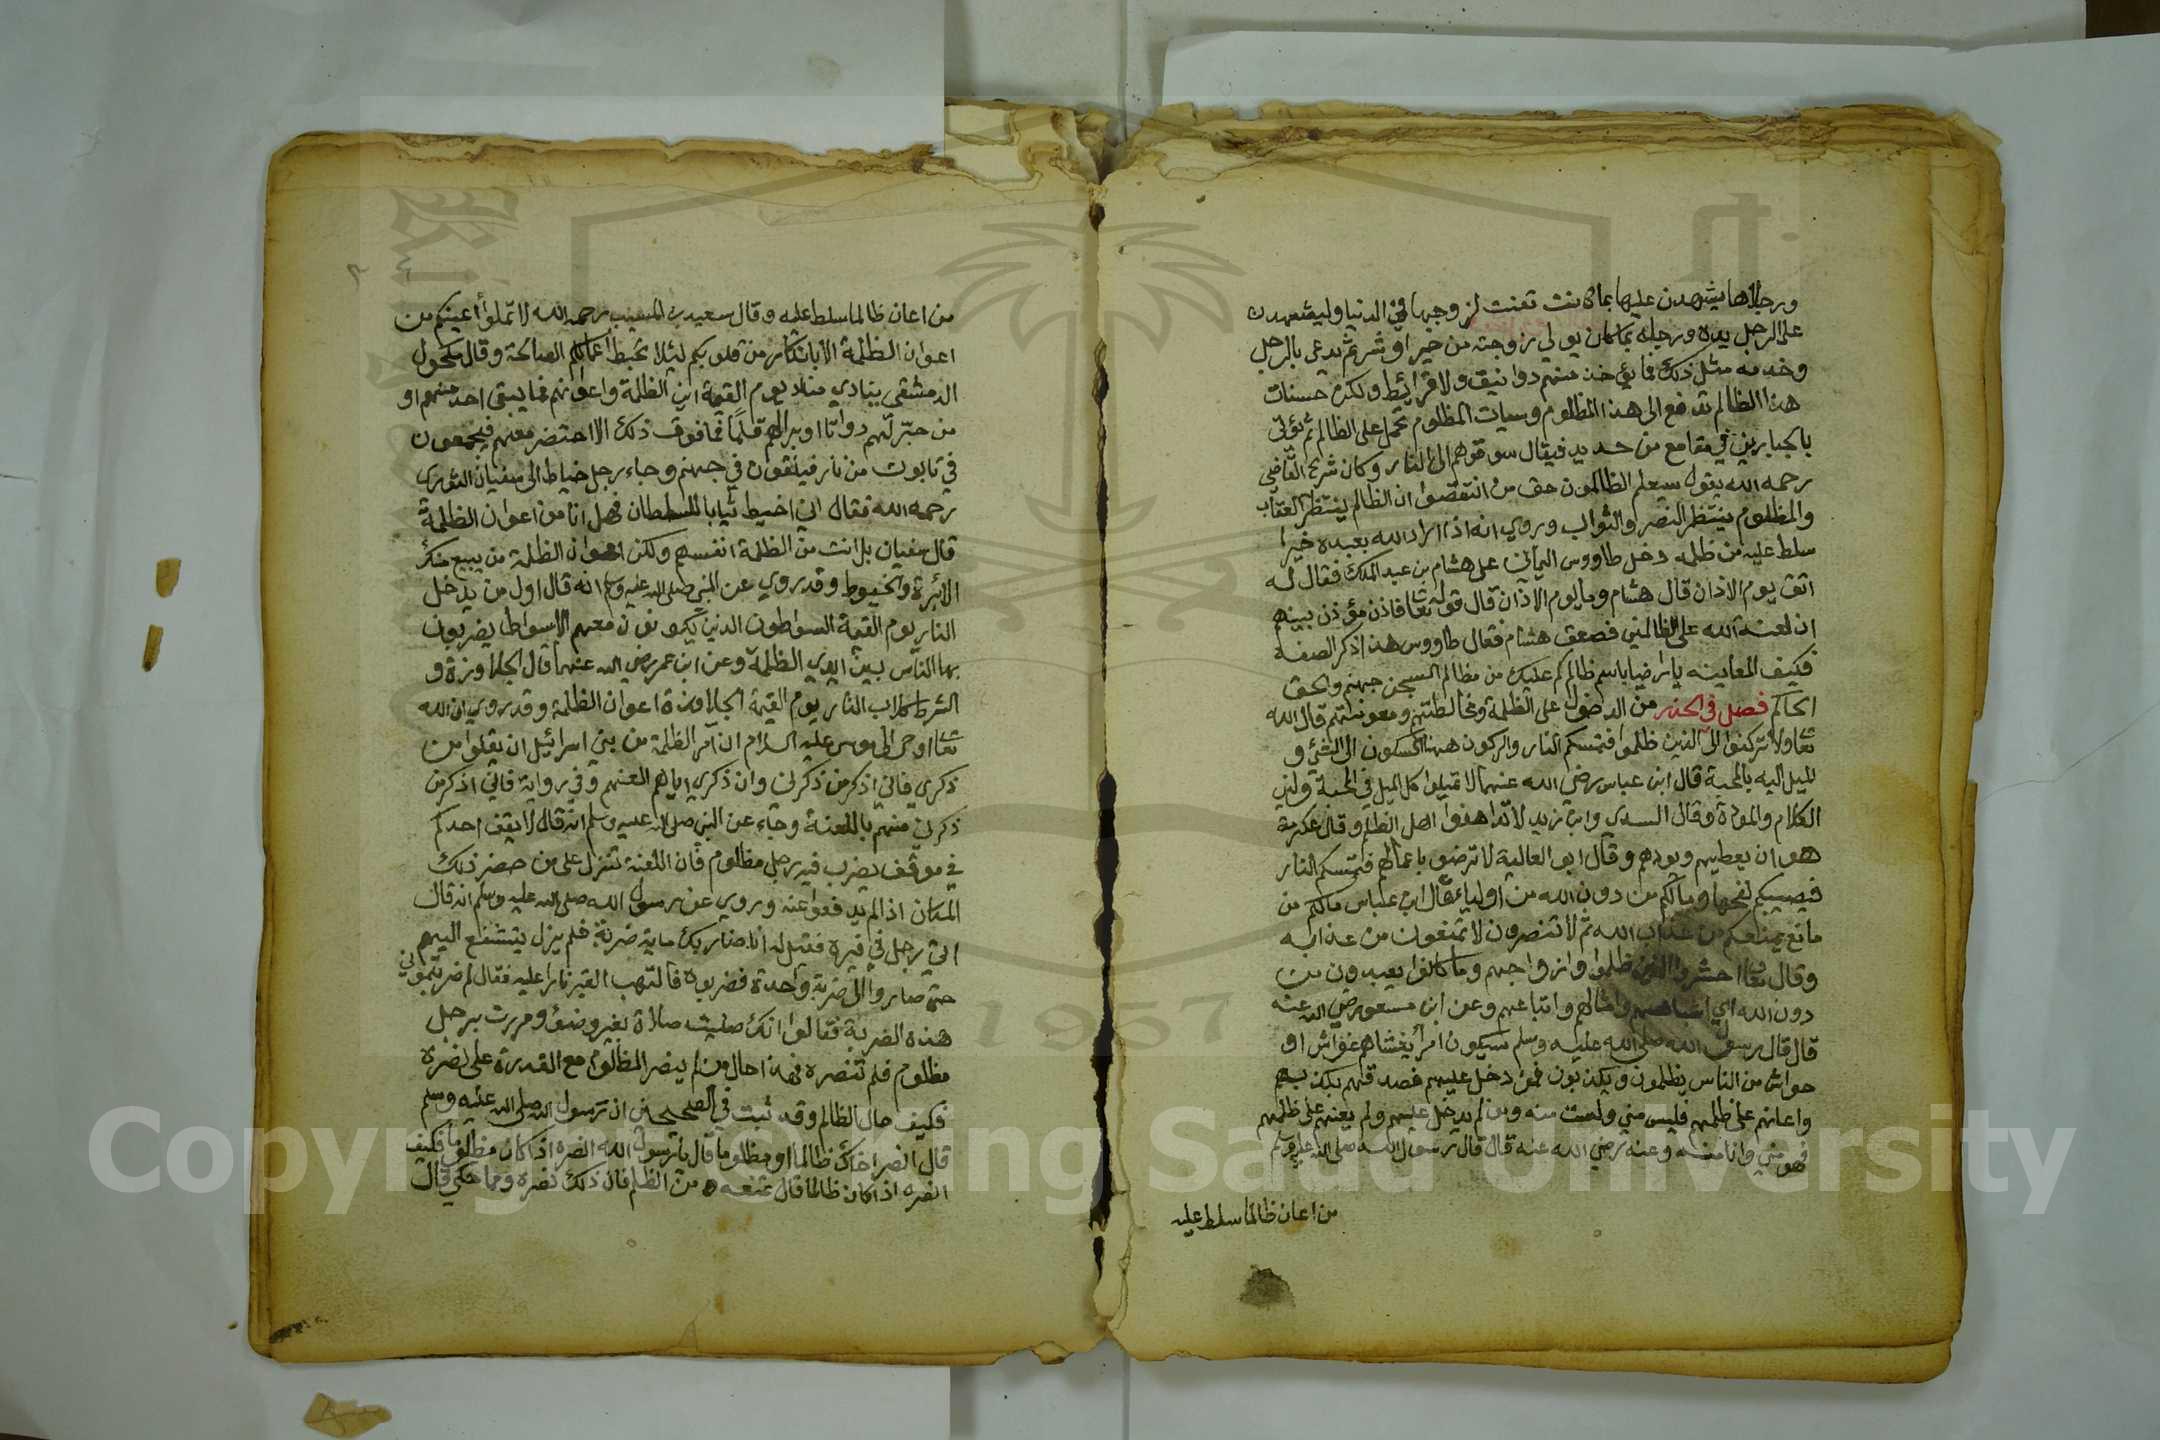 ورجلاها يشهدن عليها بما كانت تعنت لزوجها في الدنيا وليشهدن
على الرجل يده ورجله بما كان يولي زوجته من خير او شر ثم يدعى بالرجل
وخدمه مثل ذلك فما يؤخذ منهم دوانيق ولا قراريط ولكن حسنات
هذا الظالم تدفع الى هذا المظلوم وسيات المظلوم تحمل على الظالم ثم يؤتى
بالجبارين في مقامع من حديد فيقال سوقوهم الى النار وكان شريح القاضي
رحمه الله يقول سيعلم الظالمون حق من انتقصوا ان الظالم ينتظر العقاب
والمظلوم ينتظر النصر والثواب وروي انه اذا اراد الله بعبده خيرا
سلط عليه من ظلمه دخل طاووس اليماني على هشام بن عبد الملك فقال له
اتق يوم الاذان قال هشام وما يوم الاذان قال قوله تعا فاذن مؤذن بينهم
ان لعنة الله على الظالمين فصعق هشام فقال طاووس هذا ذكر الصفه
فكيف المعاينه يا راضيا باسم ظالم كم عليك من مظالم السجن جهنم والحق
الحاكم فصل في الحذر من الدخول على الظلمة ومخالطتهم ومعونتهم قال الله
تعا ولا تركنوا الى الذين ظلموا فتمسكم النار والركون ههنا السكون الى الشئ و
الميل اليه بالمحبة قال ابن عباس رضى الله عنهما لا تميلوا كل الميل في المحبة ولين
الكلام والمودة وقال السدي وابن زيد لا تداهنوا اهل الظلم وقال عكرمة
هو ان يطيعهم ويودهم وقال ابو العالية لا ترضو باعمالهم فتمسكم النار
فيصيبكم لفحها وما لكم من دون الله من اولياء قال ابن عباس ما لكم من
مانع يمنعكم من عذاب الله ثم لا تنصرون لا تمنعون من عذابه
وقال تعا احشروا الذين ظلموا وازواجهم وما كانوا يعبدون من
دون الله اي اشباههم وامثالهم واتباعهم وعن ابن مسعود رضي الله عنه
قال قال رسول الله صلى الله عليه وسلم سيكون امرأ يغشاهم غواش او
حواش من الناس يظلمون ويكذبون فمن دخل عليهم فصدقهم بكذبهم
واعانهم على ظلمهم فليس مني ولست منه ومن لم يدخل عليهم ولم يعنهم على ظلمهم
فهو مني وانا منه وعنه رضي الله عنه قال قال رسول الله صلى الله عليه وسلم
من اعان ظالما سلط عليه
من اعان ظالما سلط عليه وقال سعيد بن المسيب رحمه الله لا تملوا اعينكم من
اعوان الظلمة الا بانكار من قلوبكم ليلا تحبط اعمالكم الصالحة وقال مكحول
الدمشقي ينادي مناد يوم القيمة اين الظلمة واعوانهم فما يبقى احد منهم او
من حبر لهم دواتا او برا لهم قلما فما فوق ذلك الا احتضر معهم فيجمعون
في تابوت من نار فيلقون في جهنم وجاء رجل خياط الى سفيان الثوري
رحمه الله فقال اني اخيط ثيابا للسلطان فهل انا من اعوان الظلمة
قال سفيان بل انت من الظلمة انفسهم ولكن اعوان الظلمة من يبيع منك
الابرة والخيوط وقد روي عن النبي صلى الله عليه وسلم انه قال اول من يدخل
النار يوم القيمة السواطون الذين يكونون معهم الاسواط يضربون
بها الناس بين ايدي الظلمة وعن ابن عمر رضي الله عنهما قال الجلاوزة و
الشرط كلاب النار يوم القيمة الجلاوزة اعوان الظلمة وقد روي ان الله
تعا اوحى الى موسى عليه السلام ان آمر الظلمة من بني اسرائيل ان يقلوا من
ذكري فاني اذكر من ذكرني وان ذكري اياهم العنهم وفي رواية فاني اذكر من
ذكرني منهم باللعنة وجاء عن النبي صلى الله عليه وسلم انه قال لا يقف احدكم
في موقف يضرب فيه رجل مظلوم فان اللعنة تنزل على من حضر ذلك
المكان اذا لم يدفعوا عنه وروي عن رسول الله صلى الله عليه وسلم انه قال
اتي رجل في قبره فقيل له انا ضاربك ماية ضربة فلم يزل يتشفع اليهم
حتى صاروا الى ضربة واحدة فضربوه فالتهب القبر نارا عليه فقال لم ضربتموني
هذه الضربة فقالوا انك صليت صلاة بغير وضؤ ومررت برجل
مظلوم فلم تنصره فهذا حال من لم ينصر المظلوم مع القدرة على نصرة
فكيف حال الظالم وقد ثبت في الصحيحين ان رسول الله صلى الله عليه وسلم
قال انصر اخاك ظالما او مظلوما قال يا رسول الله انصره اذا كان مظلوما فكيف
انصره اذا كان ظالما قال تمنعه من الظلم فان ذلك نصره ومما حكي قال
1957
Copyright © King Saud University